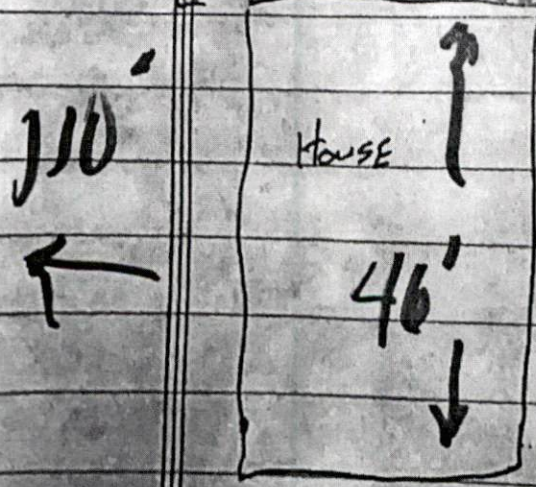 110'
House
46'